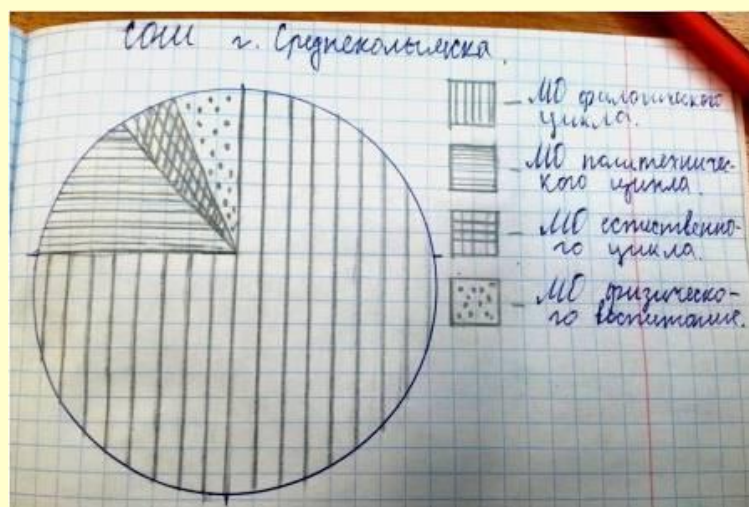 СОШ г. Среднеколымска.
– МО филогического
цикла.
– МО политехничес-
кого цикла.
– МО естественно-
го цикла.
– МО физическо-
го воспитание.